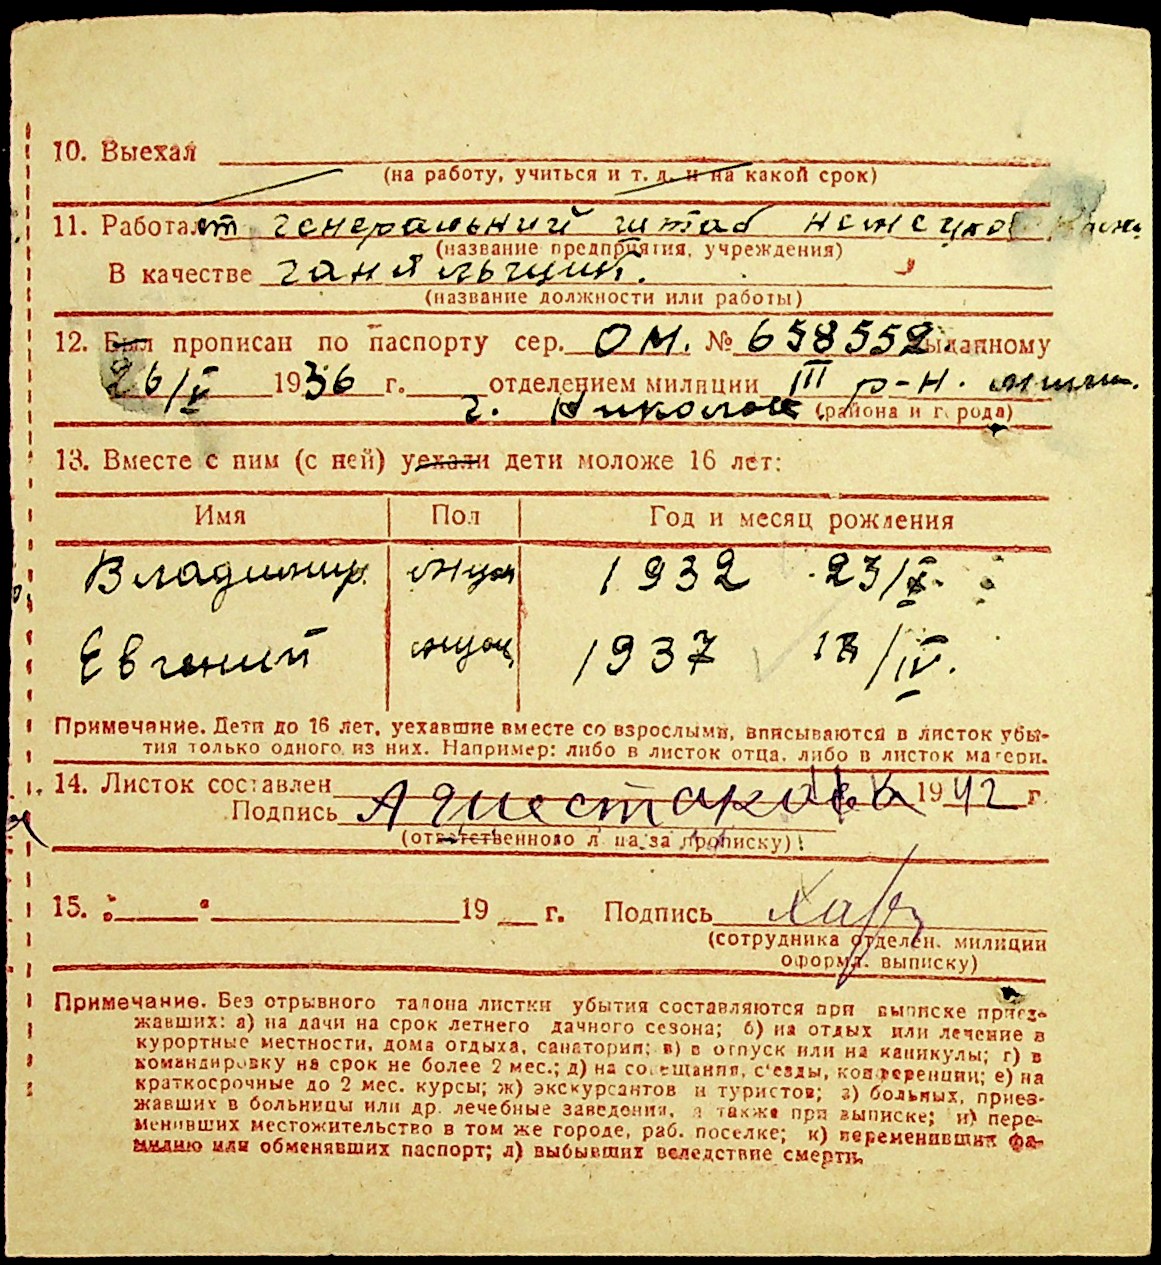 10. Выехал
(на работу, учиться и т. д. и на какой срок)
11. Работает генеральний штаб
(название предприятия, учреждения)
В качестве
(название должности или работы)
12. Был прописан по паспорту сер. ОМ. № 658552 выданному
26/V 1936 г. отделением милиции III р-н. милиц.
г. Николаев (района и города)
13. Вместе с ним (с ней) уехали дети моложе 16 лет:
Имя Пол Год и месяц рождения
Владимир муж 1932 23/X.
Евгений муж 1937 18/IV.
Примечание. Дети до 16 лет, уехавшие вместе со взрослыми, вписываются в листок убы-
тия только одного из них. Например: либо в листок отца, либо в листок матери.
14. Листок составлен 1942 г.
Подпись А Шестакова
(ответственного лица за прописку)
15. " " 19 г. Подпись
(сотрудника отделен. милиции
оформл. выписку)
Примечание. Без отрывного талона листки убытия составляются при выписке приез-
жавших: а) на дачи на срок летнего дачного сезона; б) на отдых или лечение в
курортные местности, дома отдыха, санатории; в) в отпуск или на каникулы; г) в
командировку на срок не более 2 мес.; д) на совещания, с'езды, конференции; е) на
краткосрочные до 2 мес. курсы; ж) экскурсантов и туристов; з) больных, приез-
жавших в больницы или др. лечебные заведения, а также при выписке; и) пере-
менивших местожительство в том же городе, раб. поселке; к) переменивших фа-
милию или обменявших паспорт; л) выбывших вследствие смерти.